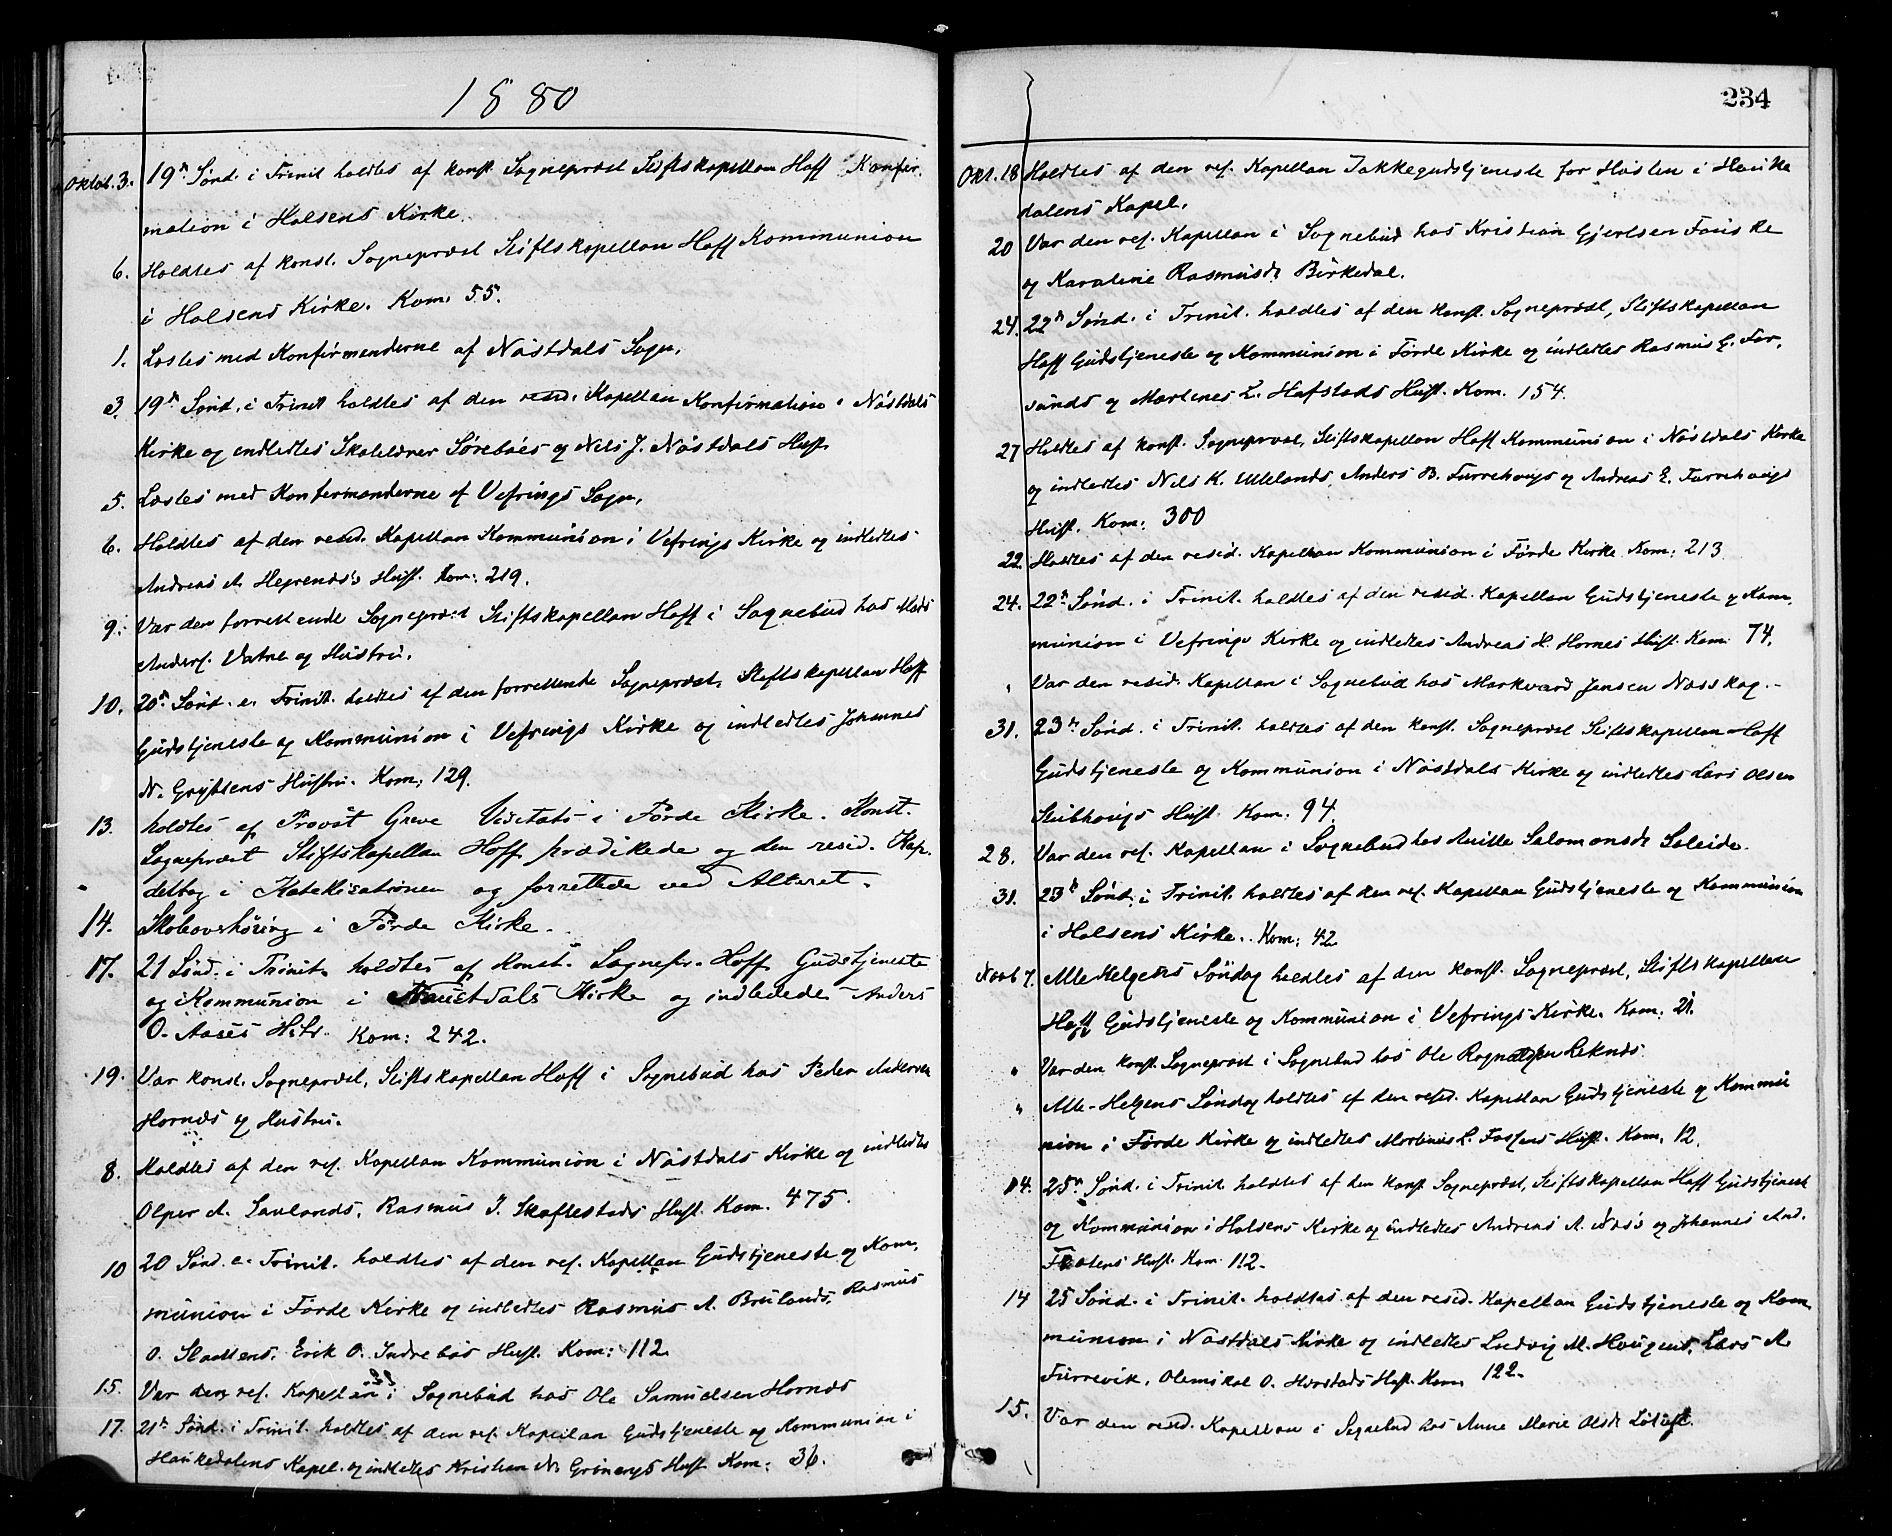 1880
Oktob. 3. 19de Sønd. i Trinit holdtes af konst. Sognepræst Stiftskapellan Hoff Konfir-
mation i Holsens Kirke.
6. Holdtes af konst. Sognepræst Stiftskapellan Hoff Kommunion
i Holsens Kirke. Kom. 55.
1. Læstes med Konfirmanderne af Nøstdals Sogn.
3. 19de Sønd. i Trinit holdtes af den resid. Kapellan Konfirmation i Nøstdals
Kirke og indledtes Skolelærer Sørebøes og Nels J. Nøstdals Hust.
5. Læstes med Konfirmanderne af Vefrings Sogn.
6. Holdtes af den resid. Kapellan Kommunion i Vefrings Kirke og indledtes
Andreas A. Hegrenæs's Hust. Kom: 219.
9. Var den forrettende Sognepræst Stiftskapellan Hoff i Sognebud hos Mads
Anders. Vatne og Hustru.
10. 20de Sønd. e. Trinit. holdtes af den forrettende Sognepræst, Stiftskapellan Hoff
Gudstjeneste og Kommunion i Vefrings Kirke og indledtes Johannes
N. Gryttens Hustru. Kom: 129.
13. holdtes af Provst Greve Visitats i Førde Kirke. Konst.
Sognepræst Stiftskapellan Hoff prædikede og den resid. Kap.
deltog i Katekisationen og forrettede ved Alteret.
14. Skoleovshøring i Førde Kirke.
17. 21 Sønd. i Trinit. holdtes af Konst. Sognepr. Hoff Gudstjeneste
og Kommunion i Naustdals Kirke og indledede Anders
O. Aases Hstr. Kom: 242.
19. Var konst. Sognepræst, Stiftskapellan Hoff i Sognebud hos Peder Andersen
Hornæs og Hustru.
8. Holdtes af den res. Kapellan Kommunion i Nøstdals Kirke og indledtes
Olper A. Savlands, Rasmus J. Skaflestads Hust. Kom. 475.
10 20 Sønd. e. Trinit. holdtes af den res. Kapellan Gudstjeneste og Kom-
munion i Førde Kirke og indledtes Rasmus A. Brulands, Rasmus
O. Slaatens, Erik O. Indrebøs Hust. Kom: 112.
15. Var den res. Kapellan i Sognebud hos Ole Samuelsen Hornæs
17. 21de Sønd. i Trinit. holdtes af den res. Kapellan Gudstjeneste og Kommunion i
Haukedalens Kapel og indledtes Kristian N. Grinengs Hust. Kom: 36.
234
Okt. 18 Holdtes af den res. Kapellan Takkegudstjeneste for Høsten i Hauke
dalens Kapel.
20 Var den res. Kapellan i Sognebud hos Kristian Gjertsen Fauske
og Karoline Rasmusdr Birkedal.
24. 22de Sønd. i Trinit. holdtes af den konst. Sognepræst, Stiftskapellan
Hoff Gudstjeneste og Kommunion i Førde Kirke og indledtes Rasmus G. For-
sunds og Martines L. Hafstads Hust. Kom. 154.
27 Holdtes af konst. Sognepræst, Stiftskapellan Hoff Kommunion i Nøstdals Kirke
og indledtes Nils K. Ullelands, Anders B. Furrehougs og Andreas E. Furrehougs
Hust. Kom: 300
22. Holdtes af den resid. Kapellan Kommunion i Førde Kirke Kom: 213
24. 22de Sønd. i Trinit. holdtes af den resid. Kapellan Gudstjeneste og Kom-
munion i Vefrings Kirke og indledtes Andreas L. Hornes Hust. Kom. 74.
" Var den resid. Kapellan i Sognebud hos Markvard Jensen Nøsskog.
31. 23de Sønd. i Trinit. holdtes af den konst. Sognepræst Stiftskapellan Hoff
Gudstjeneste og Kommunion i Nøstdals Kirke og indledtes Lars Olsen
Stubhougs Hust. Kom. 94.
28. Var den res. Kapellan i Sognebud hos Anitte Salomonsdr Soleide.
31. 23de Sønd. i Trinit. holdtes af den res. Kapellan Gudstjeneste og Kommunion
i Holsens Kirke. Kom: 42
Novb 7. Alle Helgens Søndag holdtes af den konst. Sognepræst, Stiftskapellan
Hoff Gudstjeneste og Kommunion i Vefrings Kirke. Kom: 21.
" Var den konst. Sognepræst i Sognebud hos Ole Rognaldsen Leknæs.
" Alle-Helgens Søndag holdtes af den resid. Kapellan Gudstjeneste og Kommu
nion i Førde Kirke og indledtes Martinus L. Fossens Hust. Kom. 12.
14. 25de Sønd. i Trinit. holdtes af den konst. Sognepræst, Stiftskapellan Hoff Gudstjeneste
og Kommunion i Holsens Kirke og indledtes Andreas A. Næss og Johannes And.
Hust. Kom. 112.
14 25 Sønd. i Trinit. holdtes af den resid. Kapellan Gudstjeneste og Kom
munion i Nøstdals Kirke og indledtes Ludvig M. Hougens, Lars A.
Furrevik, Olemikal O. Horstads Hust. Kom. 122.
15. Var den resid. Kapellan i Sognebud hos Anne Marie Olsdr